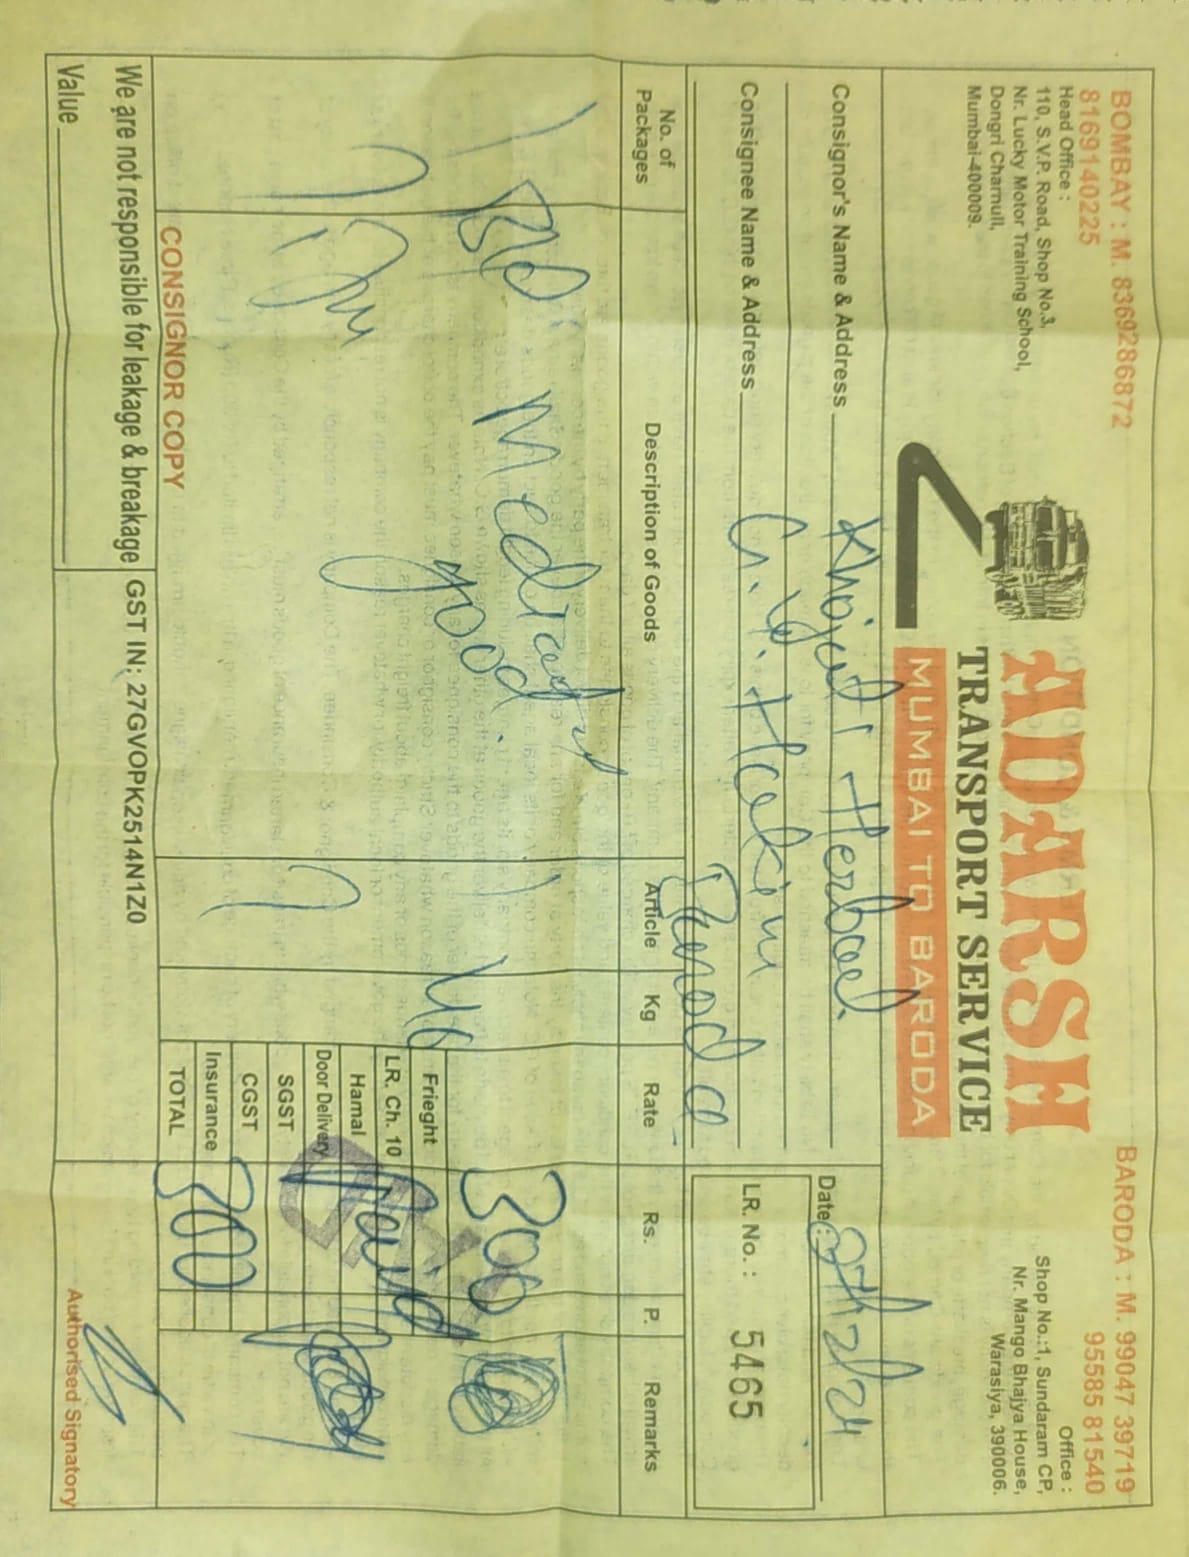 BOMBAY : M. 8369286872
8169140225
Head Office :
110, S.V.P. Road, Shop No.3,
Nr. Lucky Motor Training School,
Dongri Charnull,
Mumbai-400009.
ADARSH
TRANSPORT SERVICE
MUMBAI TO BARODA
BARODA : M. 99047 39719
95585 81540
Office :
Shop No.:1, Sundaram CP,
Nr. Mango Bhajya House,
Warasiya, 390006.
Consignor's Name & Address Khojati Herbal.
Consignee Name & Address Hakim
Baroda
Date :
LR. No. : 5465
No. of Packages Description of Goods Article Kg Rate Rs. P. Remarks
1 300
good.
Frieght
LR. Ch. 10 Paid
Hamal
Door Delivery
SGST
CGST
Insurance
TOTAL 300
CONSIGNOR COPY
We are not responsible for leakage & breakage GST IN: 27GVOPK2514N1Z0
Value
Authorised Signatory